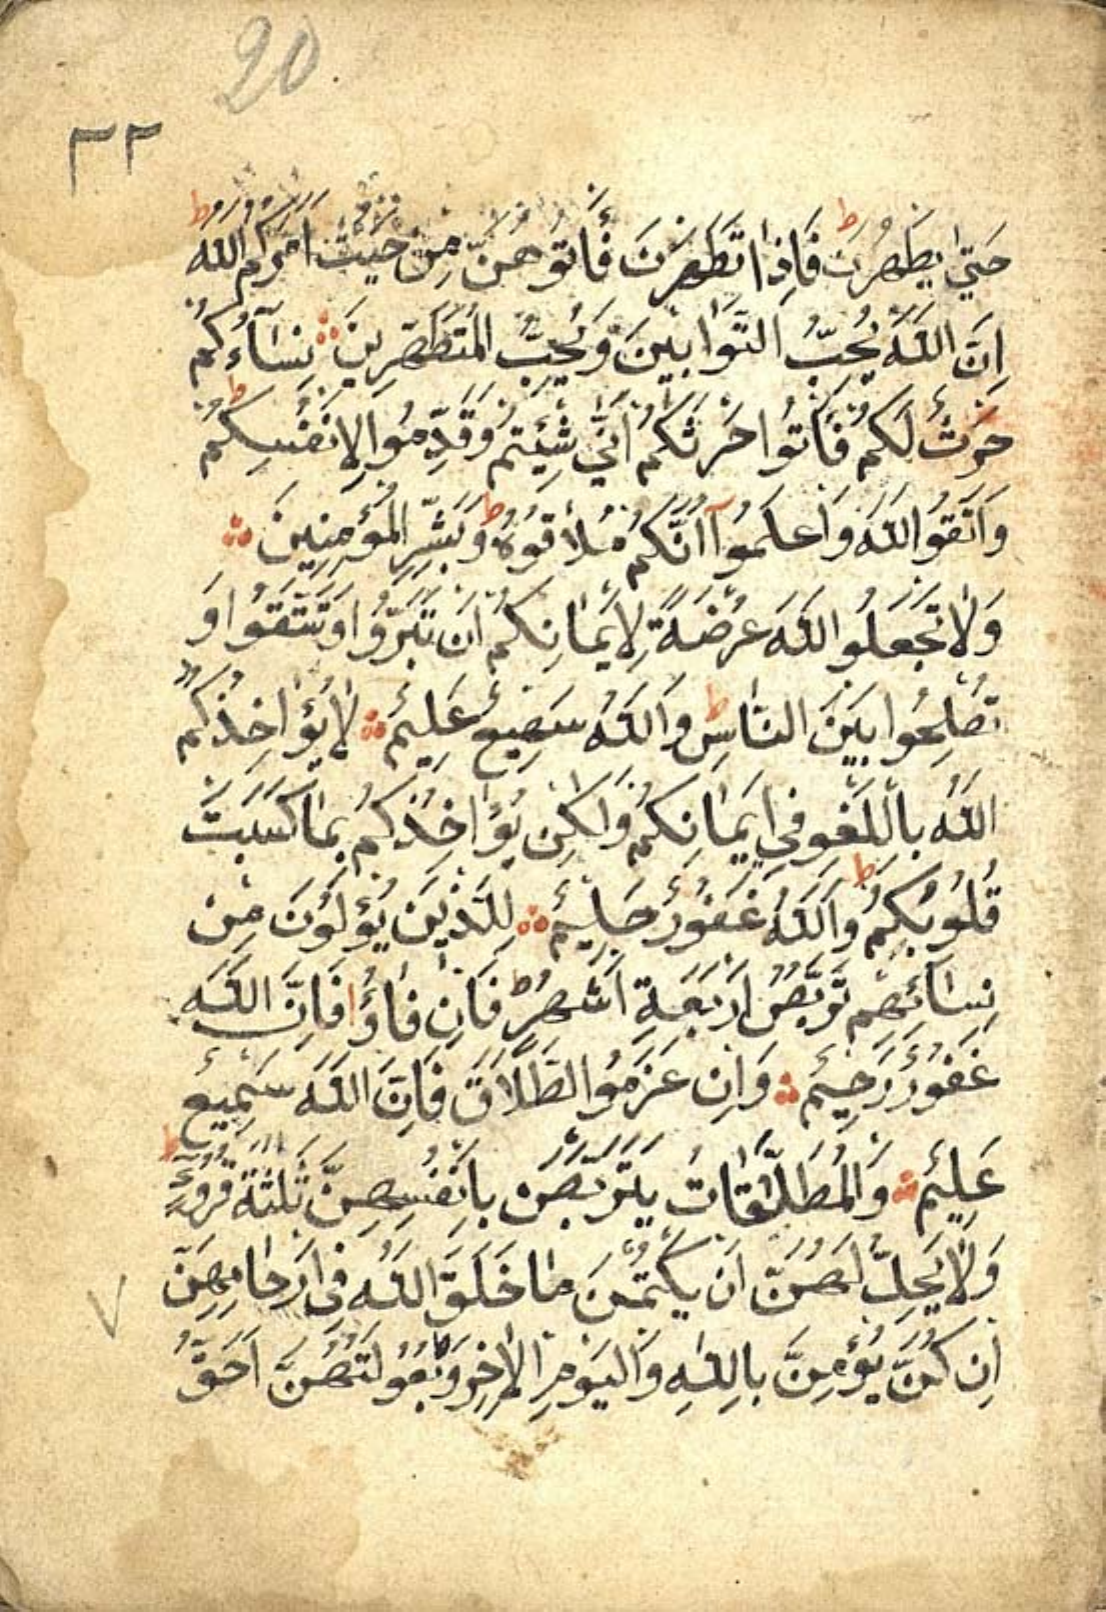 20
٣٢
حَتّٰى يَطْهُرْنَ ط فَاِذَا تَطَهَّرْنَ فَأْتُوهُنَّ مِنْ حَيْثُ اَمَرَكُمُ اللّٰهُ ط
اِنَّ اللّٰهَ يُحِبُّ التَّوَّابِينَ وَيُحِبُّ الْمُتَطَهِّرِينَ ؞ نِسَآؤُكُمْ
حَرْثٌ لَكُمْ فَأْتُوا حَرْثَكُمْ اَنّٰى شِئْتُمْ وَقَدِّمُوا لِاَنْفُسِكُمْ ط
وَاتَّقُوا اللّٰهَ وَاعْلَمُوآ اَنَّكُمْ مُلَاقُوهُ ط وَبَشِّرِ الْمُؤْمِنِينَ ؞
وَلَا تَجْعَلُوا اللّٰهَ عُرْضَةً لِاَيْمَانِكُمْ اَنْ تَبَرُّوا وَتَتَّقُوا وَ
تُصْلِحُوا بَيْنَ النَّاسِ ط وَاللّٰهُ سَمِيعٌ عَلِيمٌ ؞ لَا يُؤَاخِذُكُمُ
اللّٰهُ بِاللَّغْوِ فِي اَيْمَانِكُمْ وَلٰكِنْ يُؤَاخِذُكُمْ بِمَا كَسَبَتْ
قُلُوبُكُمْ ط وَاللّٰهُ غَفُورٌ حَلِيمٌ ؞ لِلَّذِينَ يُؤْلُونَ مِنْ
نِسَآئِهِمْ تَرَبُّصُ اَرْبَعَةِ اَشْهُرٍ ط فَاِنْ فَاؤُا فَاِنَّ اللّٰهَ
غَفُورٌ رَحِيمٌ ؞ وَاِنْ عَزَمُوا الطَّلَاقَ فَاِنَّ اللّٰهَ سَمِيعٌ
عَلِيمٌ ؞ وَالْمُطَلَّقَاتُ يَتَرَبَّصْنَ بِاَنْفُسِهِنَّ ثَلٰثَةَ قُرُوٓءٍ ط
وَلَا يَحِلُّ لَهُنَّ اَنْ يَكْتُمْنَ مَا خَلَقَ اللّٰهُ فِى اَرْحَامِهِنَّ
اِنْ كُنَّ يُؤْمِنَّ بِاللّٰهِ وَالْيَوْمِ الْاٰخِرِ وَبُعُولَتُهُنَّ اَحَقُّ